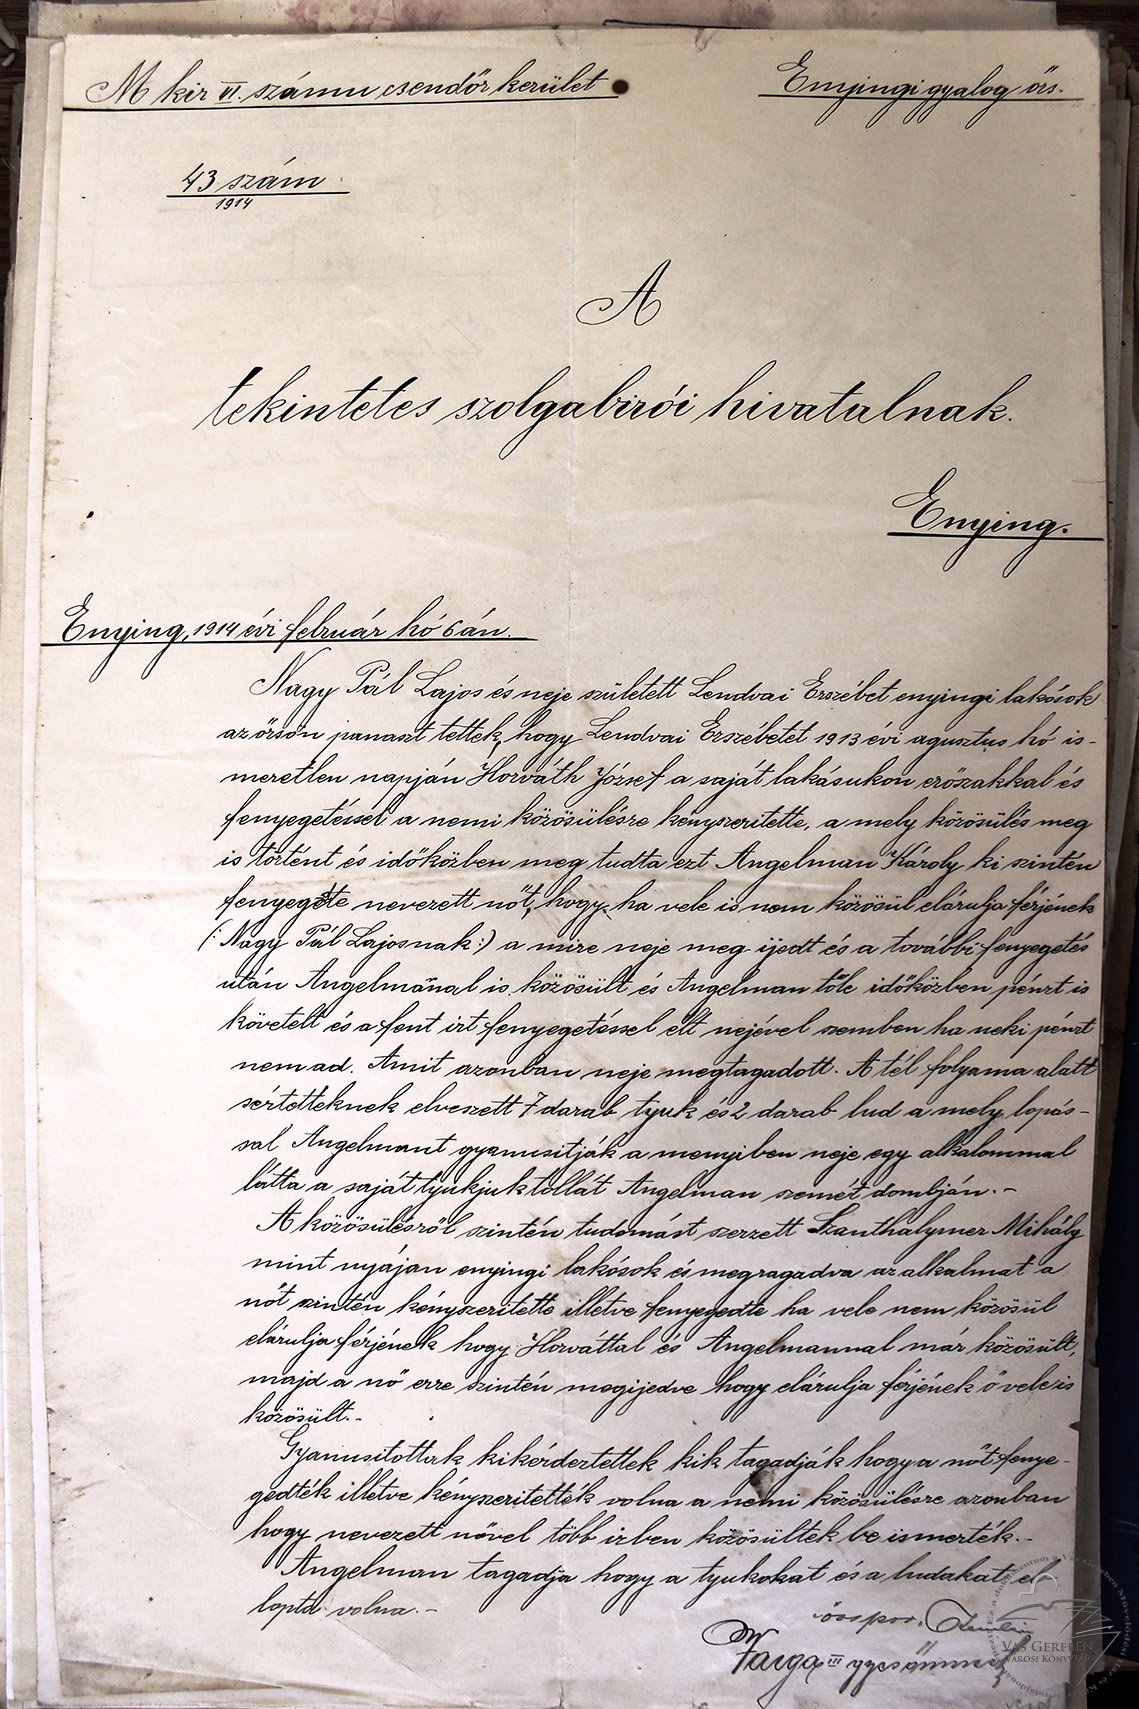 M kir VI. számu csendőr kerület
Enyingi gyalog őrs.
43 szám
1914
A
tekintetes szolgabirói hivatalnak.
Enying.
Enying, 1914 évi február hó 6 án.
Nagy Pál Lajos és neje született Lendvai Erszébet enyingi lakósok
az őrsön panaszt tettek, hogy Lendvai Erszébetet 1913 évi agusztus hó is-
meretlen napján Horváth József a saját lakásukon erőszakkal és
fenyegetéssel a nemi közösülésre kényszeritette, a mely közösülés meg
is történt és időközben meg tudta ezt Angelman Károly ki szintén
fenyegette nevezett nőt, hogy ha vele is nem közösül elárulja férjének
(: Nagy Pál Lajosnak :) a mire neje meg ijedt és a további fenyegetés
után Angelmanal is közösült és Angelman tőle időközben pénzt is
követelt és a fent irt fenyegetéssel élt nejével szemben ha neki pénzt
nem ad. Amit azonban neje megtagadott. A tél folyama alatt
sértetteknek elveszett 7 darab tyuk és 2 darab lud a mely lopás-
sal Angelmant gyanusitják a menyiben neje egy alkalommal
látta a saját tyukjuk tollát Angelman szemét dombján. -
A közösülésről szintén tudomást szerzett Szanthalymer Mihály
mint nyájan enyingi lakósok és megragadva az alkalmat a
nőt szintén kényszeritette illetve fenyegedte ha vele nem közösül
elárulja férjének hogy Horváttal és Angelmannal már közösült,
majd a nő erre szintén megijedve hogy elárulja férjének ő vele is
közösült. -
Gyanusitottak kikérdeztettek kik tagadják hogy a nőt fenye-
gedték illetve kényszeritették volna a nemi közösülésre azonban
hogy nevezett nővel több izben közösültek be ismerték. -
Angelman tagadja hogy a tyukokat és a ludakat el
lopta volna. -
Varga III
VAS GEREBEN
VÁROSI KÖNYVTÁR